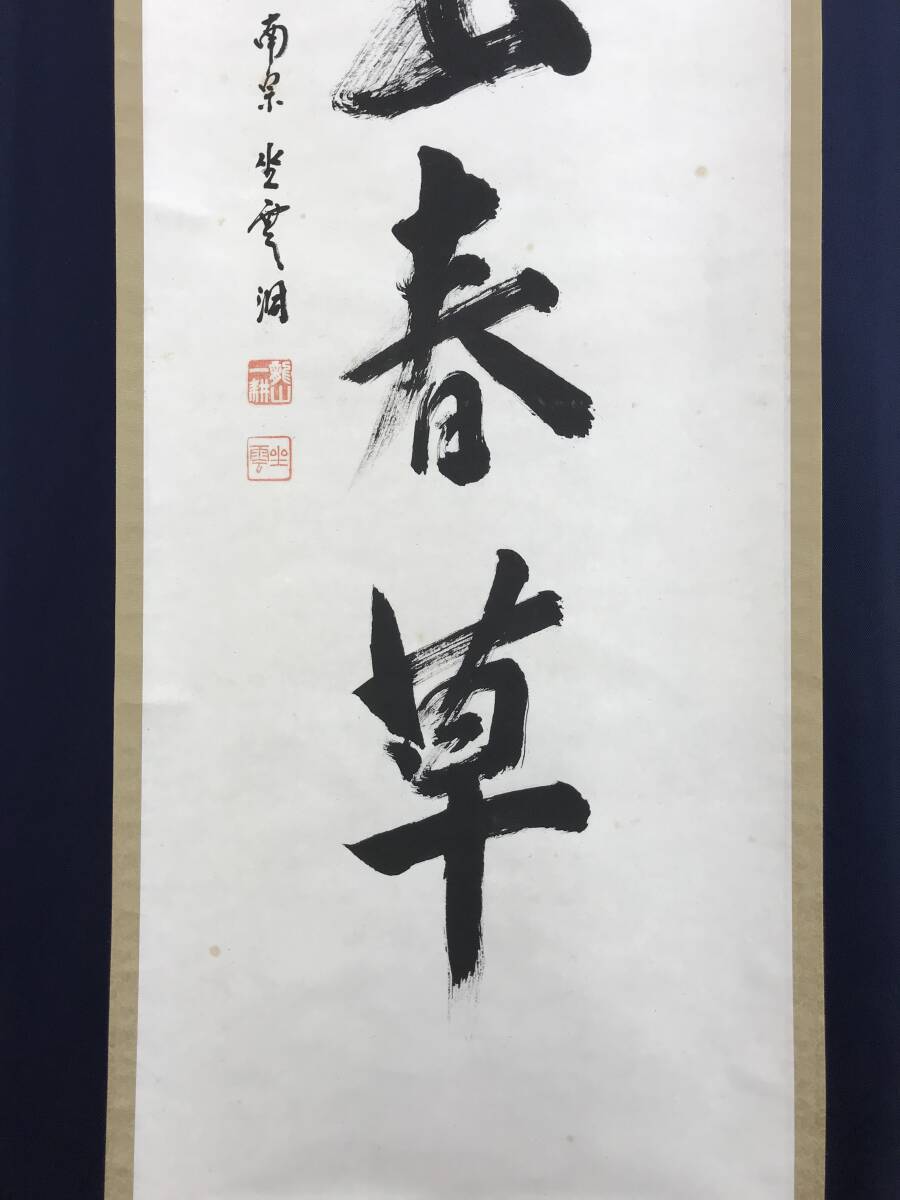 山春草
南宗 坐雲洞
龍山一耕
坐雲